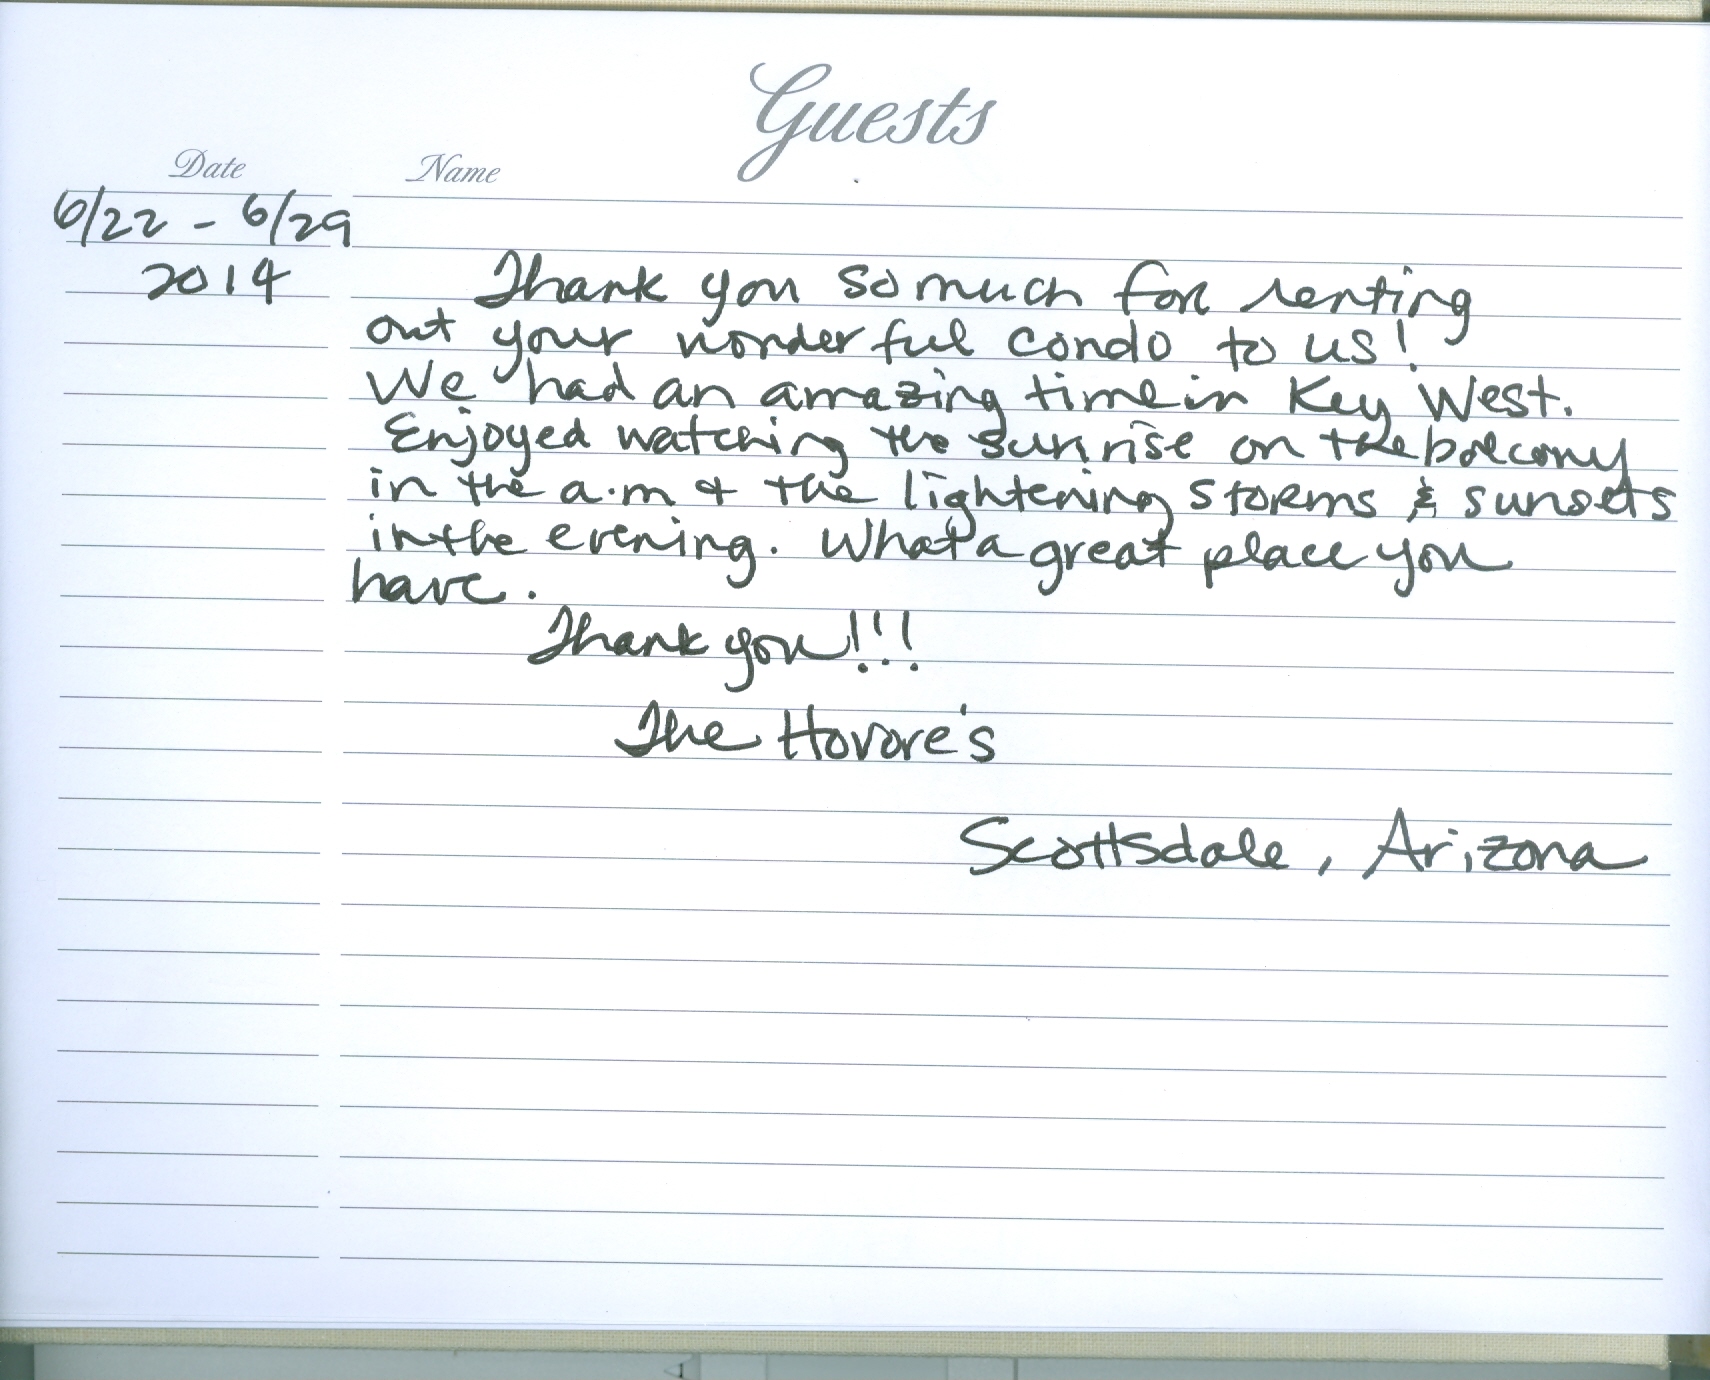 Guests
Date Name
6/22 - 6/29
2014
Thank you so much for renting
out your wonderful condo to us!
We had an amazing time in Key West.
Enjoyed watching the sunrise on the balcony
in the a.m & the lightening storms & sunsets
in the evening. What a great place you
have.
Thank you!!!
The Hovore's
Scottsdale, Arizona